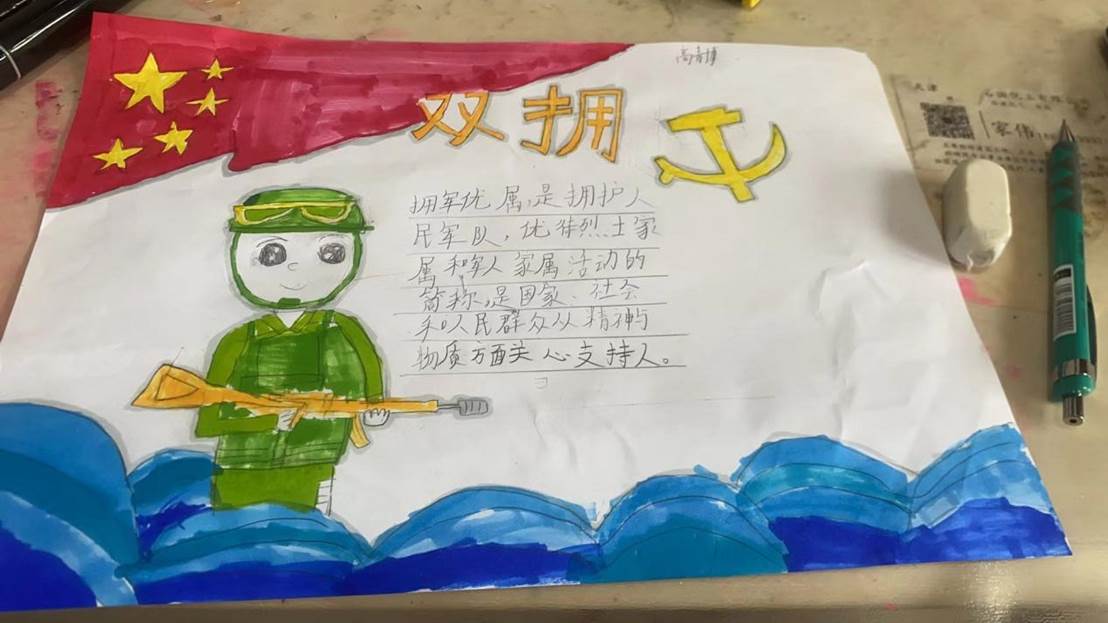 双拥
拥军优属,是拥护人
民军队,优待烈士家
属和军人家属活动的
简称,是国家、社会
和人民群众从精神与
物质方面关心支持人。
天津